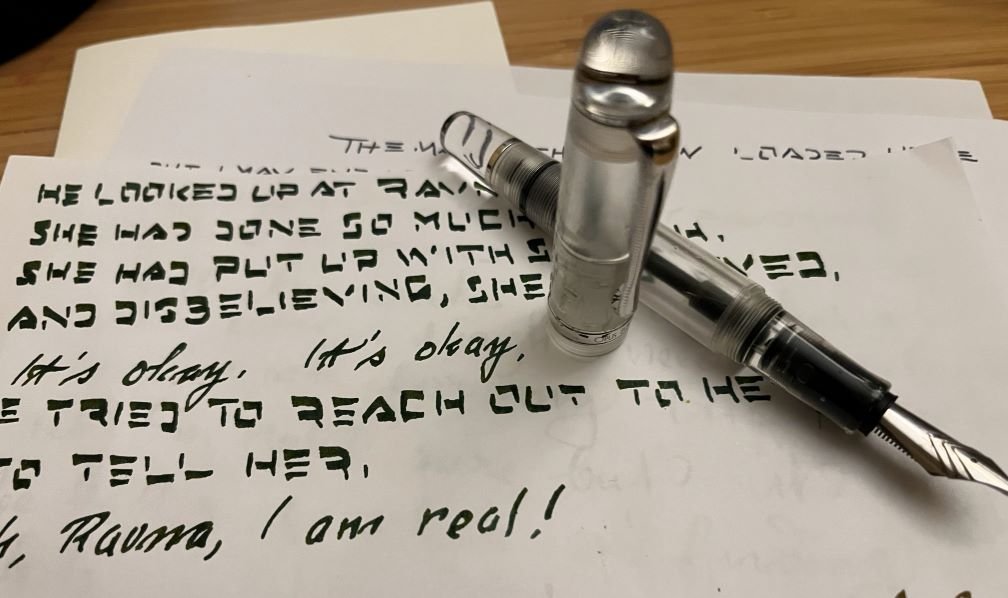 THE
LOADED
BUT I MAY
HE LOOKED UP AT
SHE HAD DONE SO MUCH
SHE HAD PUT UP WITH
AND DISBELIEVING, SHE
It's okay. It's okay.
TRIED TO REACH OUT TO HE
TO TELL HER,
Ravna, I am real!